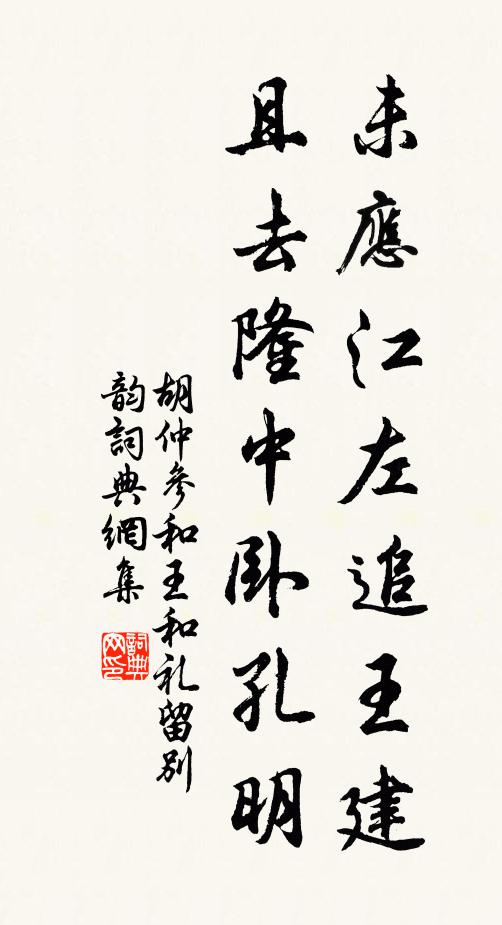 未應江左追王建
且去隆中卧孔明
胡仲參和王和礼留別
韵詞典網集
詞典网印